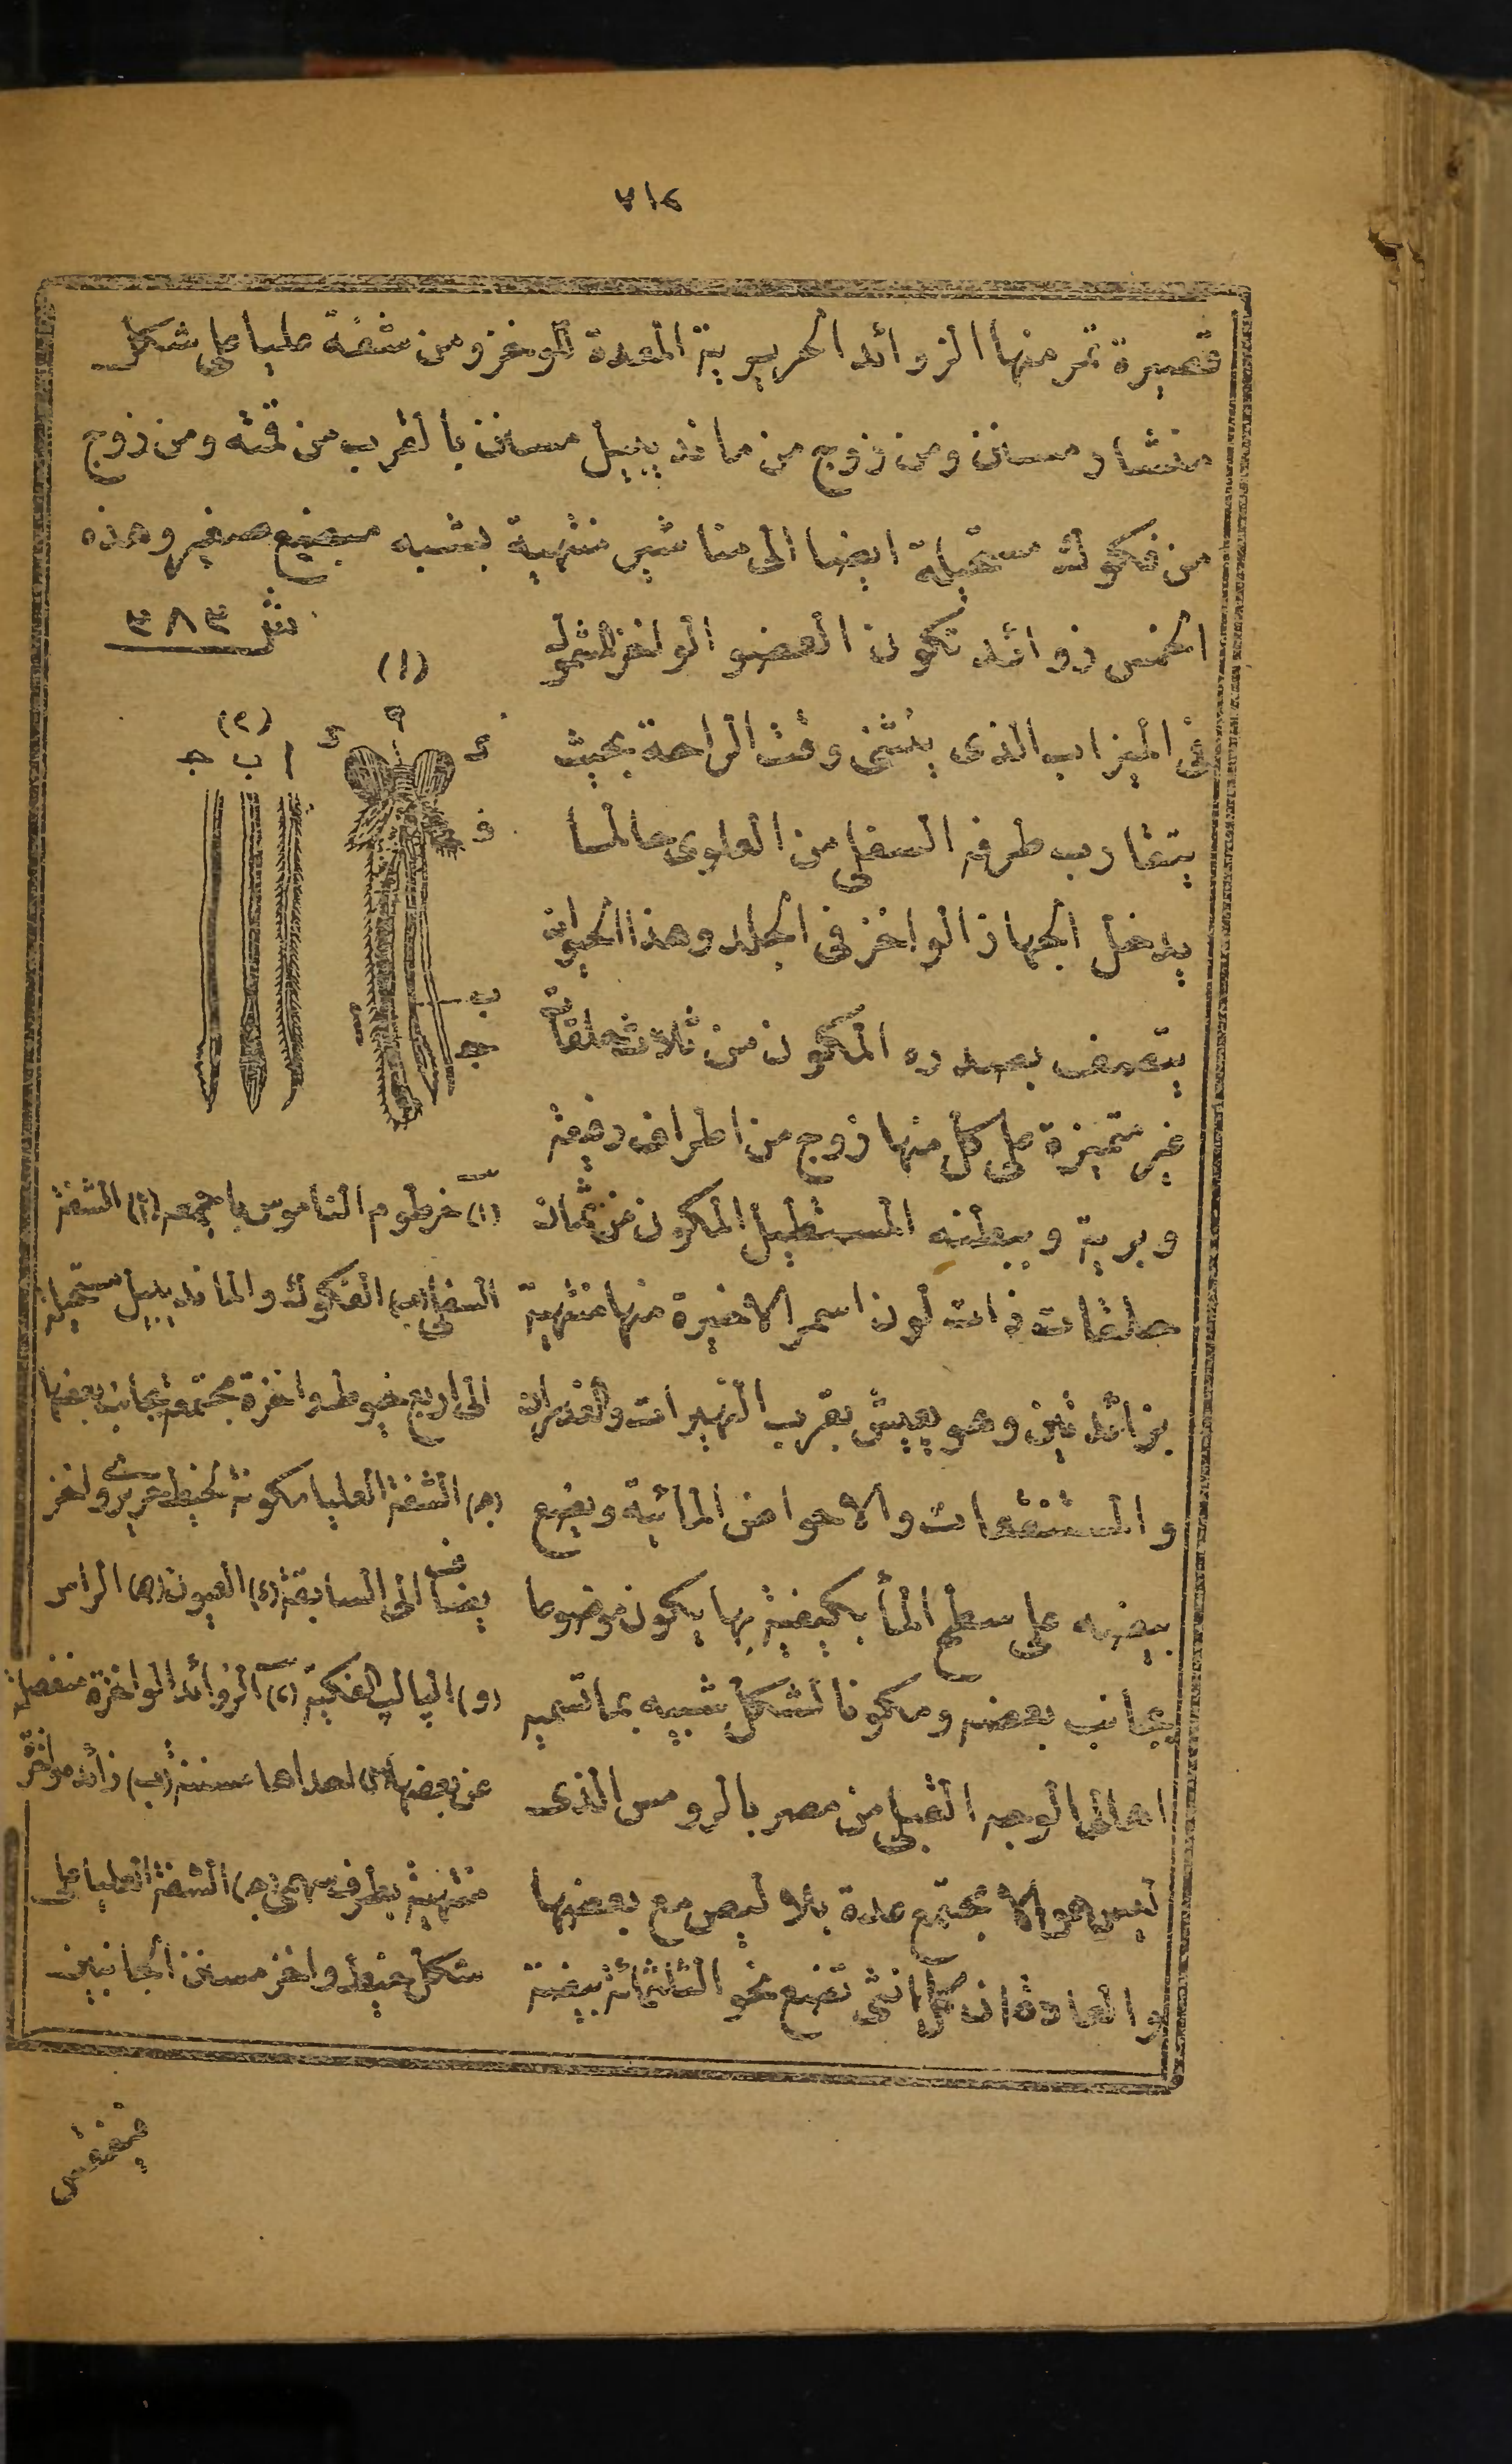 ٧١٤
قصيرة تمر منها الزوائد الحريرية المعدة للوخز ومن شفة عليا على شكل
منشار مسنن ومن زوج من ماندبيل مسنن بالقرب من قمته ومن زوج
من فكوك مستحيلة ايضا الى مناشير منتهية بشبه مبضع صغير وهذه
الخمس زوائد تكون العضو الواخز المشمول
فى الميزاب الذى ينثنى وقت الراحة بحيث
يتقارب طرفه السفلى من العلوى حالما
يدخل الجهاز الواخز فى الجلد وهذا الحيوان
يتصف بصدره المكون من ثلاث حلقات
غير متميزة على كل منها زوج من اطراف رفيعة
وبرية وببطنه المستطيل المكون من ثمان
حلقات ذات لون اسمر الاخيرة منها منتهية
بزائدتين وهو يعيش بقرب النهيرات والغدران
والمستنقعات والاحواض المائية ويضع
بيضه على سطح الماء بكيفية بها يكون موضوعا
بجانب بعضه ومكونا لشكل شبيه بما تسميه
اهالى الوجه القبلى من مصر بالرومس الذى
ليس هو الا تجتمع عدة بلاليص مع بعضها
والعادة ان كل انثى تضع نحو الثلثمائة بيضة
ش ٣٨٣
(١)
(٢)
ا ب ج
د ه د
و
ب
ا
ج
(١) خرطوم الناموس باجمعه (أ) الشفة
السفلى (ب) الفكوك والماندبيل مستحيلة
الى اربع خيوط واخزة مجتمعة بجانب بعضها
(ج) الشفة العليا مكونة لخيط حريرى واخز
يضاف الى السابقة (د) العيون (ه) الراس
(و) الپالپ الفكية (٢) الزوائد الواخزة منفصلة
عن بعضها (أ) احداها مسننة (ب) زائدة واخزة
منتهية بطرف سهمى (ج) الشفة العليا على
شكل خيط واخز مسنن الجانبين
فيفقس